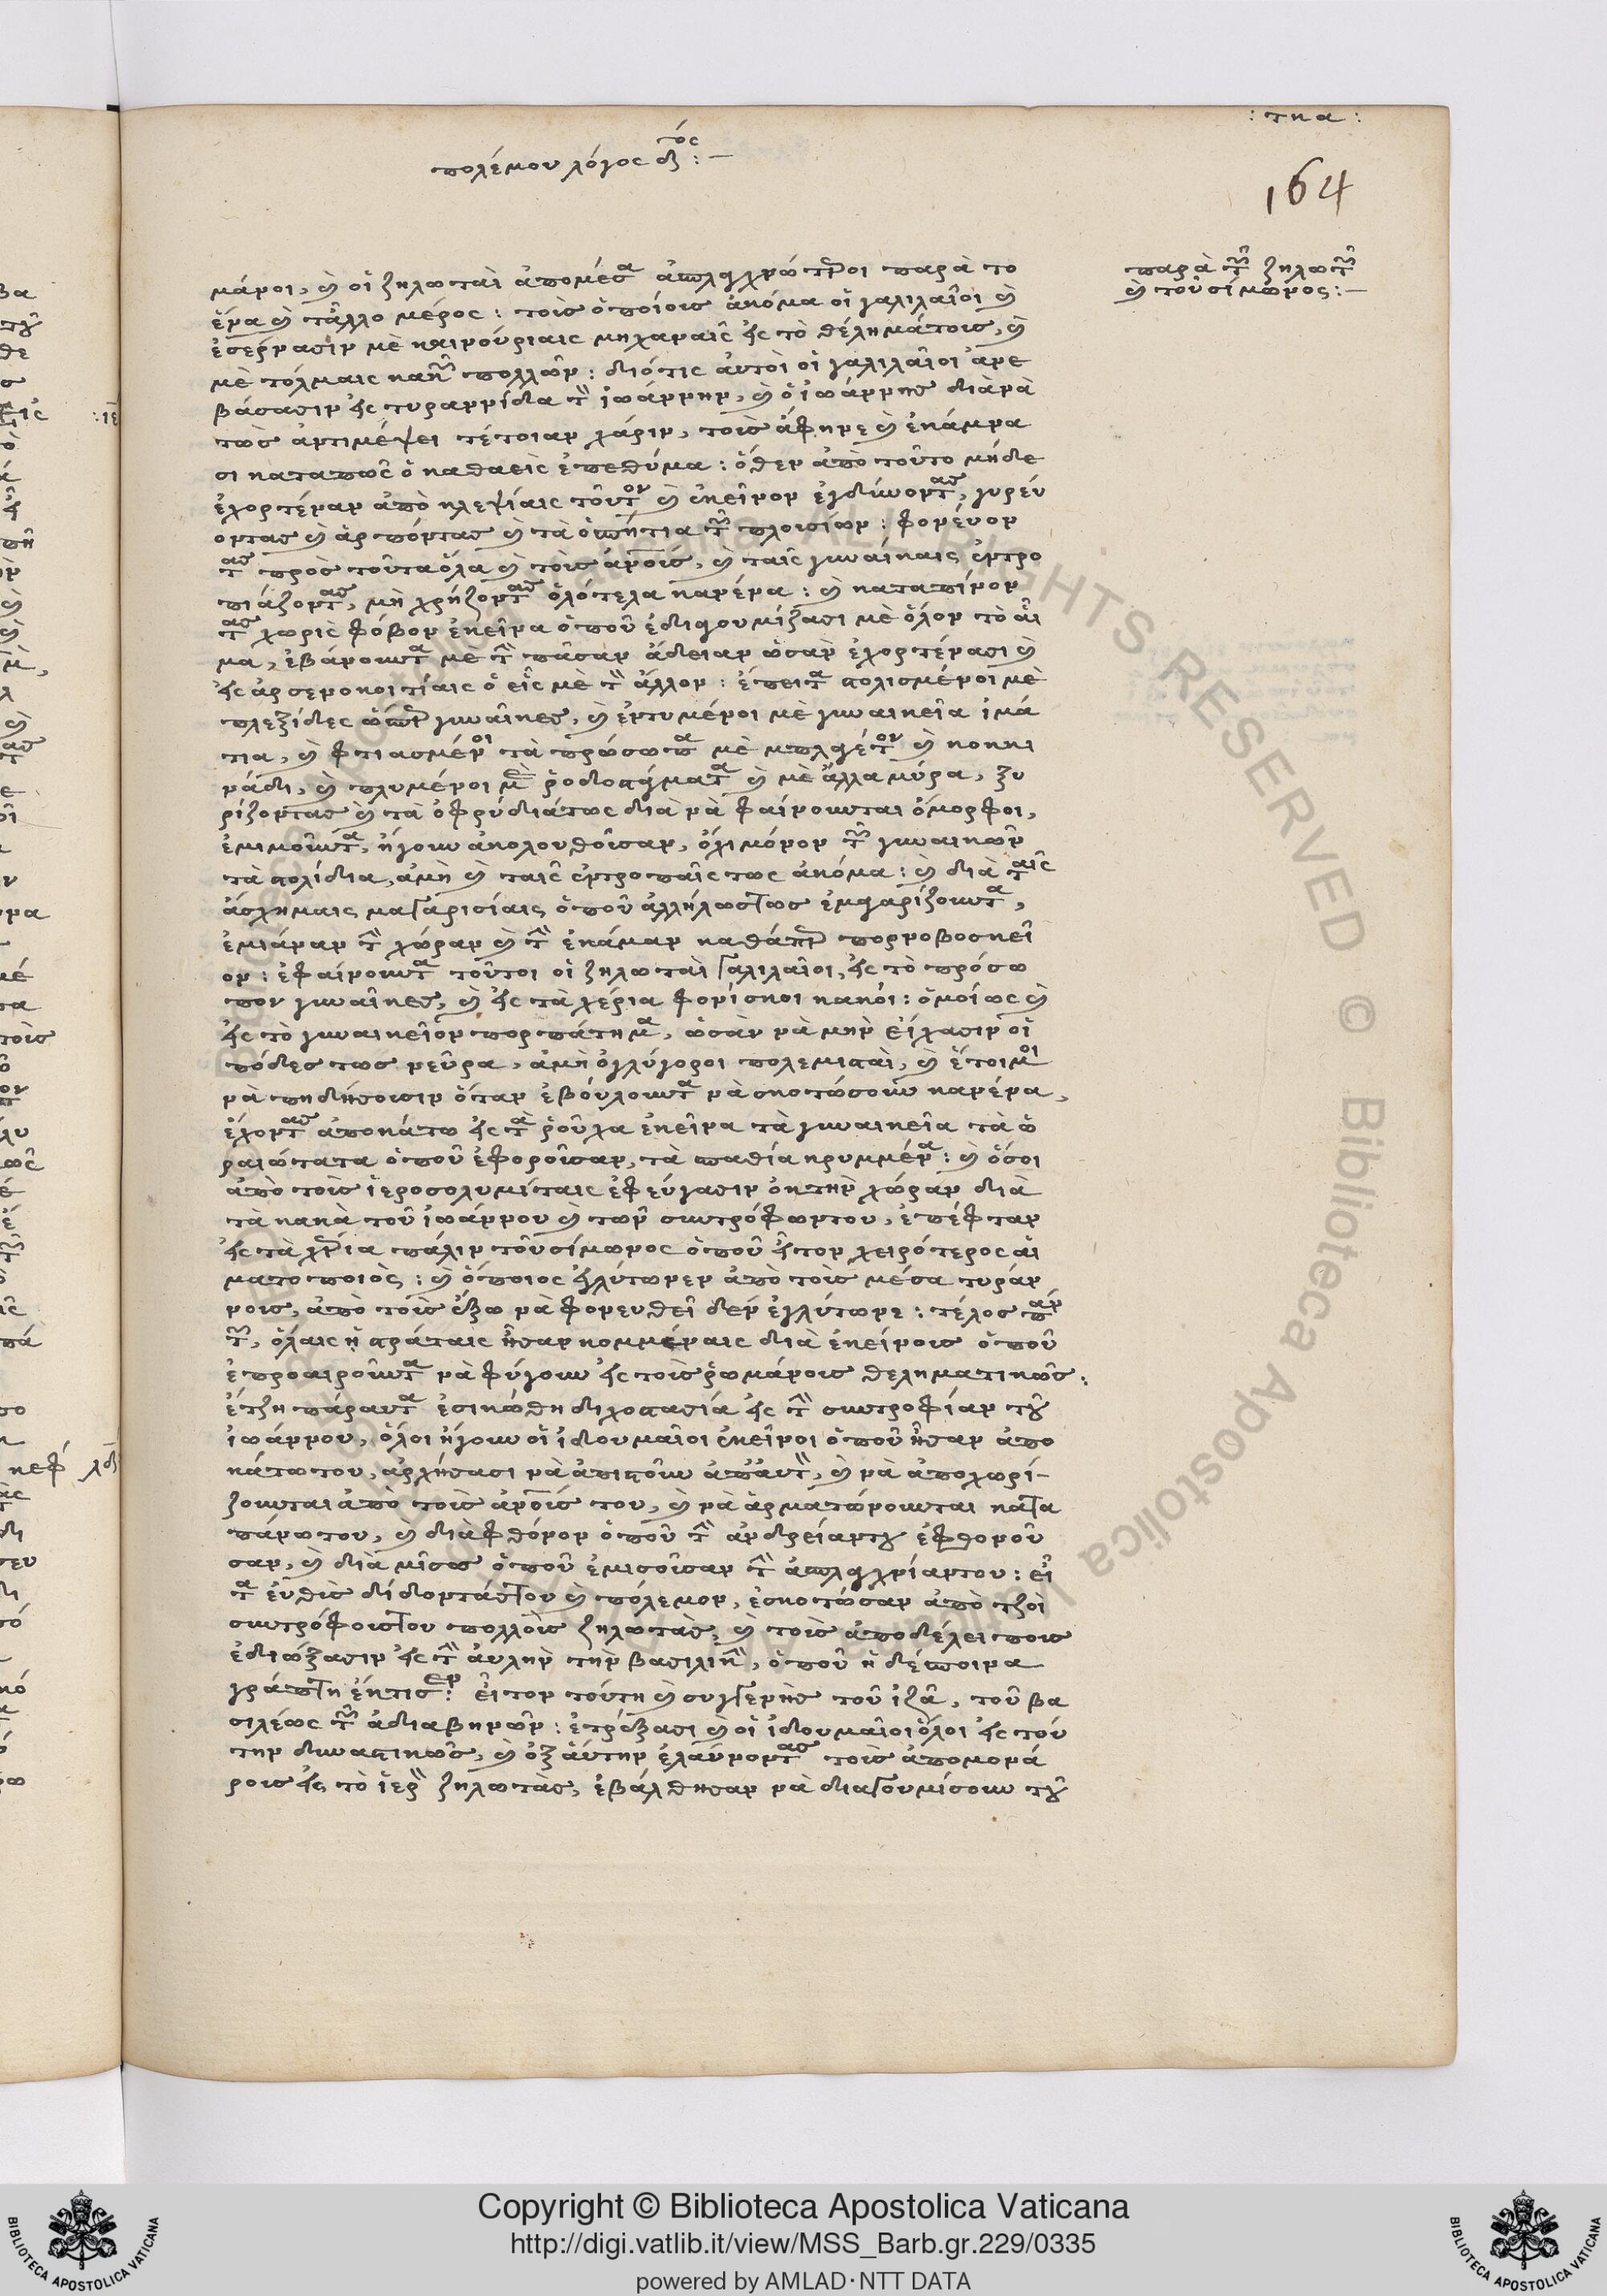 : τπα :
πολέμου λόγος δ τός : —
164
παρὰ τῶν ζηλωτῶν
καὶ τοῦ σίμωνος : —
μάνοι, καὶ οἱ ζηλωταὶ ἀπομέσα ἀπλιχρώτεροι παρὰ το
ἕνα καὶ τἄλλο μέρος : τοὺς ὁποίους ἀκόμα οἱ γαλιλαῖοι καὶ
ἐσέρνασιν μὲ καινούριαις μηχαναῖς εἰς τὸ θέλημάτους, καὶ
μὲ τόλμαις κακῶν πολλῶν : διότις αὐτοὶ οἱ γαλιλαῖοι ἀνε
βάσασιν εἰς τυραννίδα τὸν ἰωάννην, καὶ ὁ ἰωάννης διὰ νὰ
τῶς ἀντιμέψει τέτοιαν χάριν, τοὺς ἄφηνε καὶ ἐκάμνα
σι καταπῶς ὁ καθαεὶς ἐπεθύμα : ὅθεν ἀπὸ τοῦτο μήδε
ἐχορτέναν ἀπὸ κλεψίαις τοῦτον καὶ ἐκεῖνον ἐγδίωοντας, γυρεύ
οντας καὶ ἁρπόντας καὶ τὰ ὁσπήτια τῶν πλουσίων : φονεύον
τας πρὸς τοῦτα ὅλα καὶ τοὺς ἄνους, καὶ ταῖς γυναίκαις ἐντρο
πιάζοντας, μὴ χρήζοντας ὁλότελα κανένα : καὶ καταπίνον
τας χωρὶς φόβον ἐκεῖνα ὁποῦ ἐδιαγουμίζασι μὲ ὅλον τὸ αἷ
μα, ἐβάνουντα μὲ τὸν πᾶσαν ἄδειαν ὡσὰν ἐχορτένασι καὶ
εἰς ἀρσενοκοιτίαις ὁ εἷς μὲ τὸν ἄλλον : ἔπειτα στολισμένοι μὲ
πλεξίδες ὥσπερ γυναῖκες, καὶ ἐντυμένοι μὲ γυναικεῖα ἱμά
τια, καὶ φτιασμένοι τὰ πρώσωπα μὲ μπλ and καὶ κοκκι
νάδι, καὶ πλυμένοι μὲ ῥοδοστάματα καὶ μὲ ἄλλα μύρα, ξυ
ρίζοντας καὶ τὰ ὀφρύδιάτως διὰ νὰ φαίνουνται ὄμορφοι,
ἐμιμοῦντα, ἤγουν ἀκολουθοῦσαν, ὄχι μόνον τῶν γυναικῶν
τὰ στολίδια, ἀμὴ καὶ ταῖς ἐντροπαῖς τως ἀκόμα : καὶ διὰ ταῖς
ἄσχημαις μαγαρισίαις ὁποῦ ἀλλήλωςτως ἐμαγαρίζουντα,
ἐμιάναν τὴν χώραν καὶ τὴν ἐκάμαν καθάπερ πορνοβοσκεῖ
ον : ἐφαίνουντα τοῦτοι οἱ ζηλωταὶ γαλιλαῖοι, εἰς τὸ πρόσω
πον γυναῖκες, καὶ εἰς τὰ χέρια φονίσκοι κακοί : ὁμοίως καὶ
εἰς τὸ γυναικεῖον πορπάτημα, ὡσὰν νὰ μὴν εἴχασιν οἱ
πόδες τως νεῦρα, ἀμὴ ὀγλύγοροι πολεμισταὶ, καὶ ἕτοιμοι
νὰ πηδήσουσιν ὅταν ἐβούλουντα νὰ σκοτώσουν κανένα,
ἔχοντας ἀποκάτω εἰς τὰ ῥοῦχα ἐκεῖνα τὰ γυναικεῖα τὰ ὡ
ραιώτατα ὁποῦ ἐφοροῦσαν, τὰ σπαθία κρυμμένα : καὶ ὅσοι
ἀπὸ τοὺς ἱεροσολυμίταις ἐφεύγασιν ὀκτὴν χώραν διὰ
τὰ κακὰ τοῦ ἰωάννου καὶ τῶν συντρόφωντου, ἐπέφταν
εἰς τὰ χέρια πάλιν τοῦ σίμωνος ὁποῦ ἦτον χειρότερος αἱ
ματοποιὸς : καὶ ὅποιος ἐγλύτωνεν ἀπὸ τοὺς μέσα τυράν
νους, ἀπὸ τοὺς ἔξω νὰ φονευθεῖ δεν ἐγλύτωνε : τέλος πάν
των, ὅλαις ᾑ στράταις ἦσαν κομμέναις διὰ ἐκείνους ὁποῦ
ἐπροαιροῦντα νὰ φύγουν εἰς τοὺς ῥωμάνους θεληματικῶς :
ἔτζη πάραυτα ἐσικώθη διχοστασία εἰς τὴν συντροφίαν τοῦ
ἰωάννου, ὅλοι ἤγουν οἱ ἰδουμαῖοι ἐκεῖνοι ὁποῦ ἦσαν ἀπο
κάτωτου, ἀρχήσασι νὰ ἀπιστοῦν ἀπαυτὸν, καὶ νὰ ἀποχωρί-
ζουνται ἀπὸ τοὺς ἄνους του, καὶ νὰ ἁρματώνουνται κατα
πάνωτου, καὶ διὰ φθόνον ὁποῦ τὴν ἀνδρείαντου ἐφθονοῦ
σαν, καὶ διὰ μῖσος ὁποῦ ἐμισοῦσαν τὴν ἀπλιχρίαντου : εἶ
τα εὐθὺς δίδοντάςτου καὶ πόλεμον, ἐσκοτῶσαν ἀπὸ τζοὶ
συντρόφουςτου πολλοὺς ζηλωτὰς, καὶ τοὺς ἀποδέλοιπους
ἐδιώξασιν εἰς τὴν αὐλὴν τὴν βασιλικὴν, ὁποῦ ἡ δέσποινα
γράπτη ἔκτισεν : εἶτον τούτη καὶ συγγενὴς τοῦ ἰζᾶ, τοῦ βα
σιλέως τῶν ἀδιαβηνῶν : ἐτρέξασι καὶ οἱ ἰδουμαῖοι ὅλοι εἰς τού
την δυναστικῶς, καὶ ὀξ αὐτὴν ἐλαύνοντας τοὺς ἀπομονά
ρους εἰς τὸ ἱερὸν ζηλωτὰς, ἐβάλθησαν νὰ διαγουμίσουν τοῦ
Copyright © Biblioteca Apostolica Vaticana
http://digi.vatlib.it/view/MSS_Barb.gr.229/0335
powered by AMLAD·NTT DATA